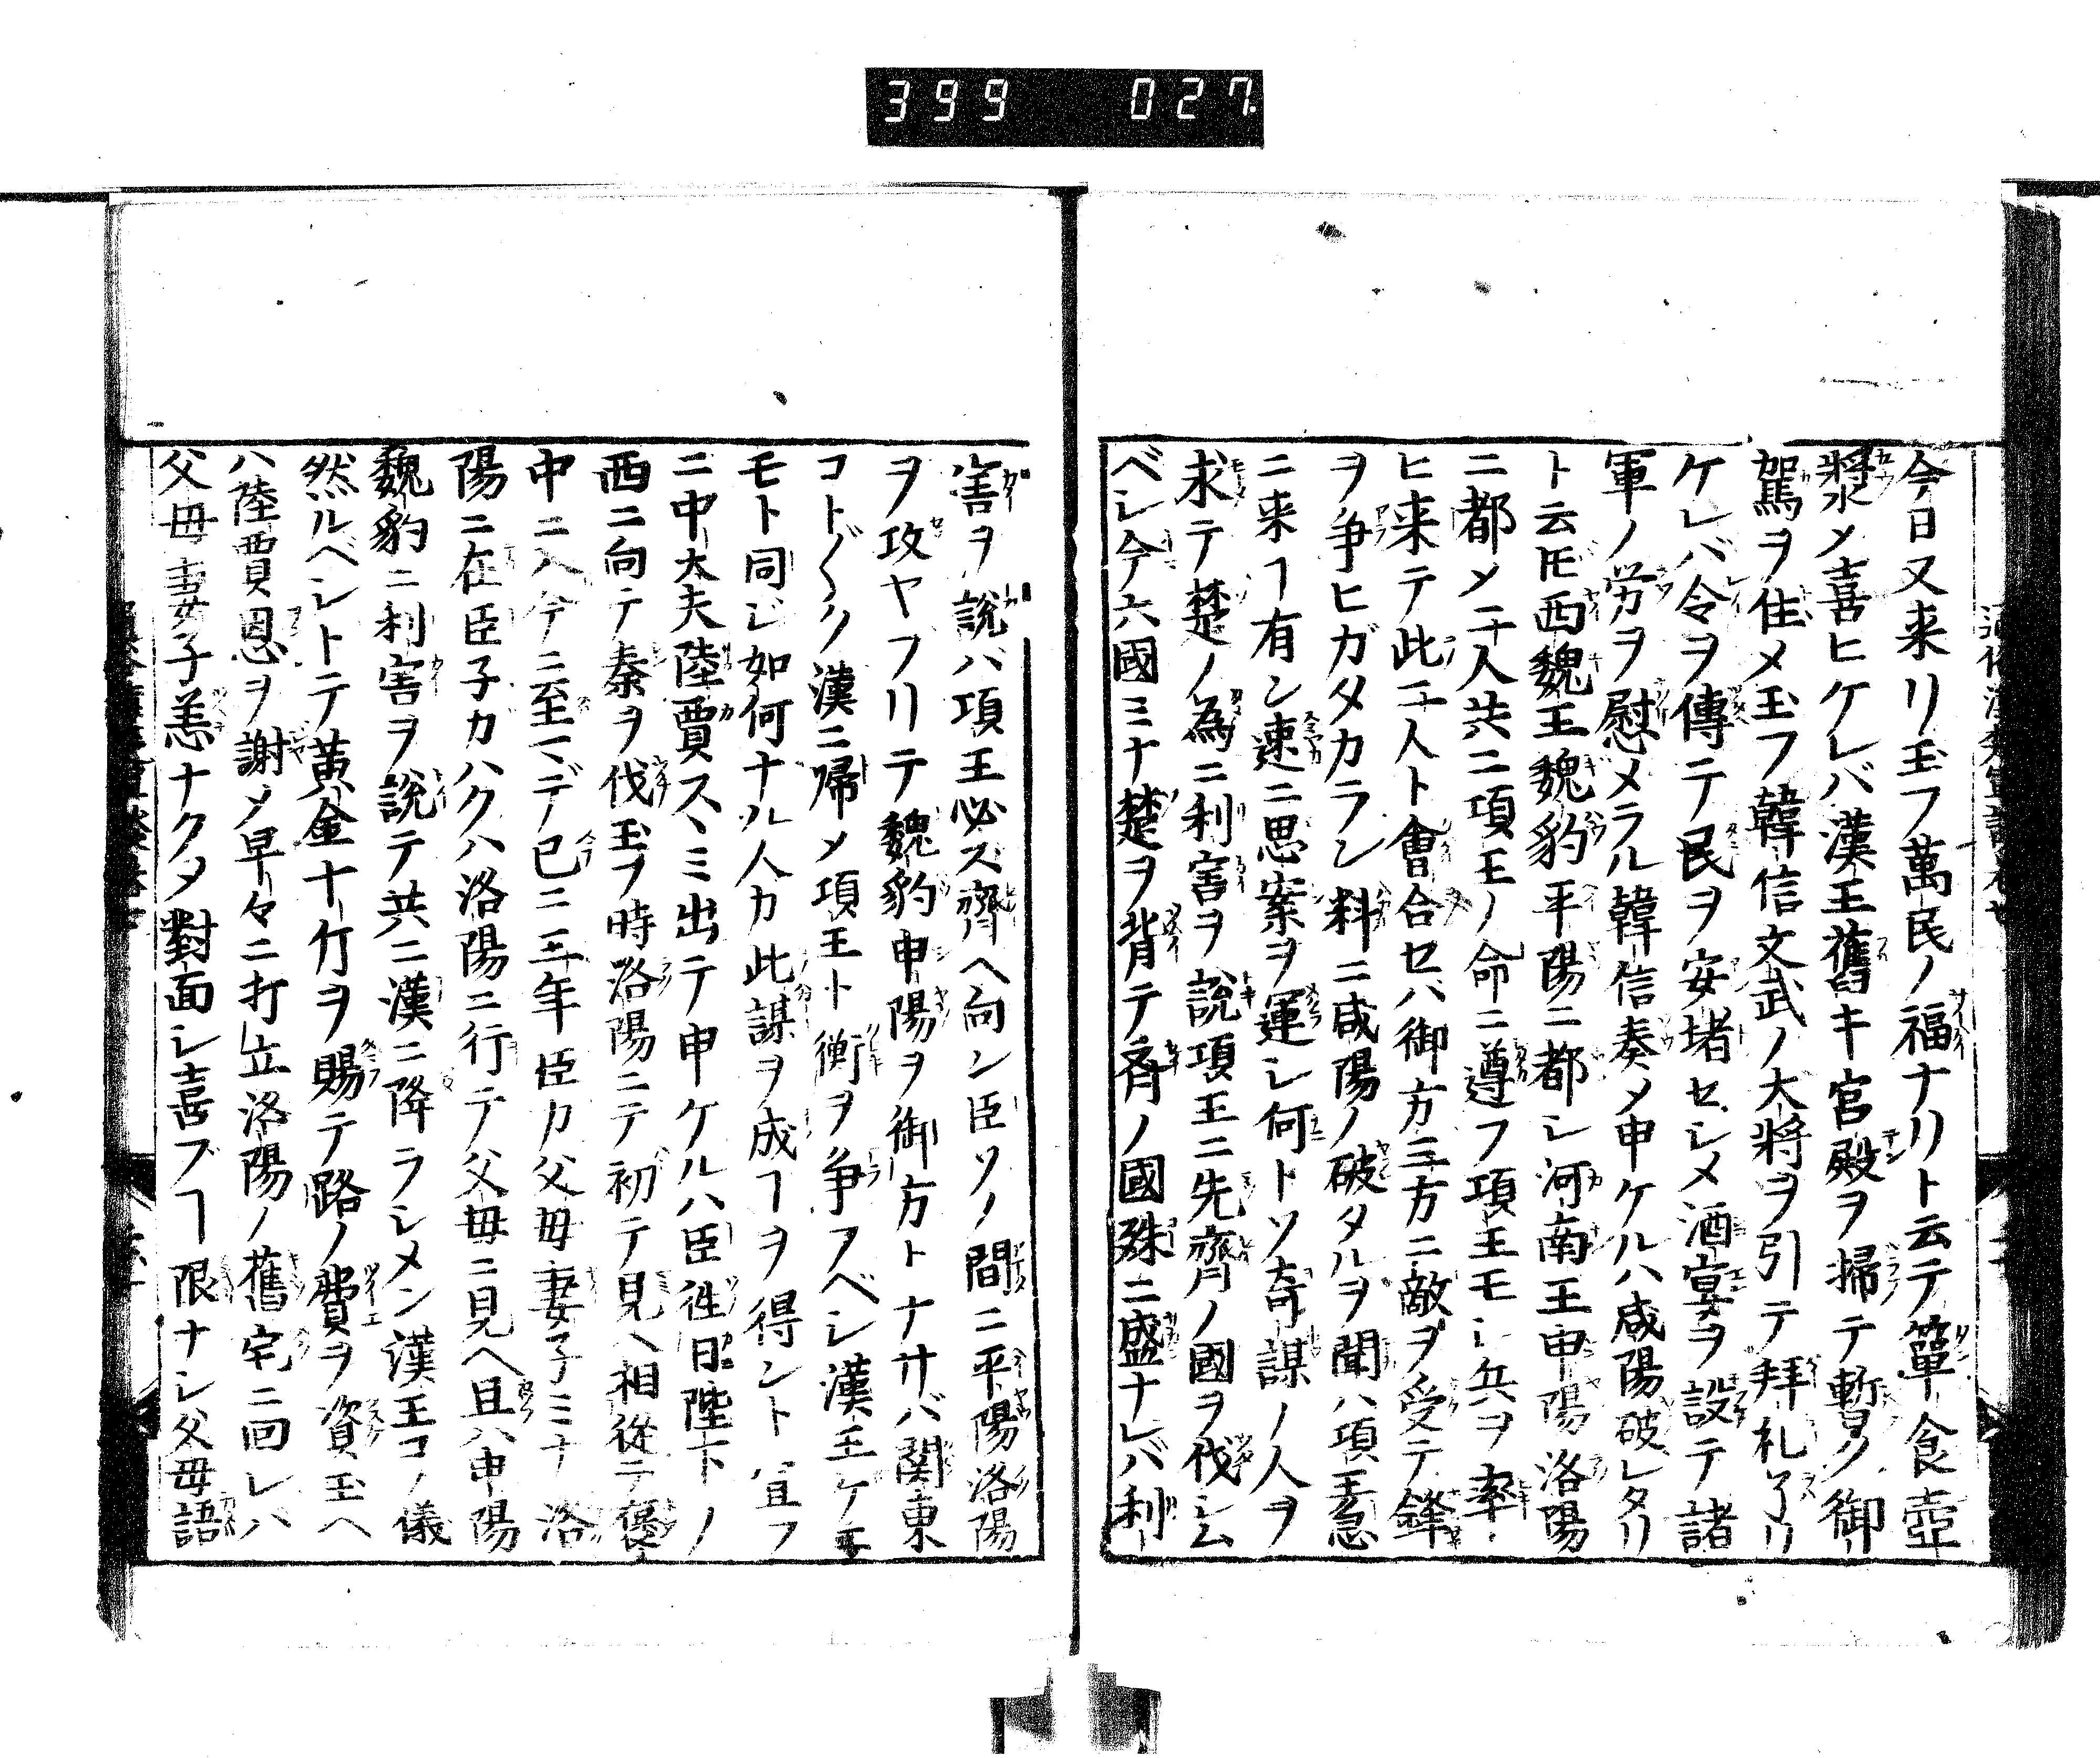 399 027
今日又来リ玉フ萬民ノ福ナリト云テ簞食壺
漿メ喜ヒケレバ漢王舊キ官殿ヲ掃テ暫ク御
駕ヲ住メ玉フ韓信文武ノ大將ヲ引テ拜礼了リ
ケレバ令ヲ傳テ民ヲ安堵セシメ酒宴ヲ設テ諸
軍ノ労ヲ慰メラル韓信奏メ申ケルハ咸陽破レタリ
ト云𪜈西魏王魏豹平陽ニ都シ河南王申陽洛陽
ニ都メ二人共ニ項王ノ命ニ遵フ項王モシ兵ヲ率
ヒ来テ此二人ト會合セバ御方三方ニ敵ヲ受テ鋒
ヲ争ヒガタカラン料ニ咸陽ノ破タルヲ聞ハ項王急
ニ来ヿ有ン速ニ思案ヲ運シ何トソ奇謀ノ人ヲ
求テ楚ノ為ニ利害ヲ說項王ニ先齊ノ國ヲ伐シム
ベシ今六國ミナ楚ヲ背テ斉ノ國殊ニ盛ナレバ利
害ヲ說バ項王必ス齊ヘ向ン臣ソノ間ニ平陽洛陽
ヲ攻ヤフリテ魏豹申陽ヲ御方トナサバ関東
コト〴〵ク漢ニ帰メ項王ト衡ヲ争フベシ漢王ケニ
モト同ジ如何ナル人カ此謀ヲ成ヿヲ得ント宣フ
ニ中大夫陸賈スヽミ出テ申ケルハ臣徃日陛下ノ
西ニ向テ秦ヲ伐玉フ時洛陽ニテ初テ見ヘ相從テ褒
中ニ入今ニ至マデ已ニ三年臣カ父母妻子ミナ洛
陽ニ在臣子カハクハ洛陽ニ行テ父母ニ見ヘ且ハ申陽
魏豹ニ利害ヲ說テ共ニ漢ニ降ラシメン漢王コノ儀
然ルヘシトテ黄金十斤ヲ賜テ路ノ費ヲ資玉ヘ
ハ陸賈恩ヲ謝メ早々ニ打立洛陽ノ舊宅ニ回レハ
父母妻子恙ナクメ對面シ喜ブヿ限ナシ父母語